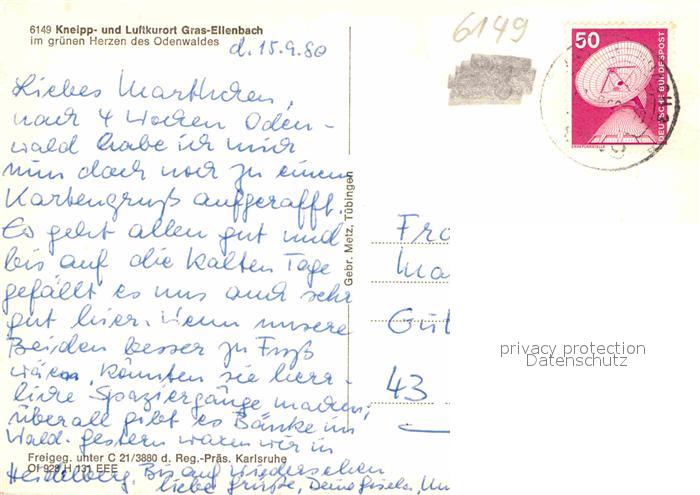 6149 Kneipp- und Luftkurort Gras-Ellenbach
im grünen Herzen des Odenwaldes
d. 15.9.80
6149
50
DEUTSCHE BUNDESPOST
Liebes Marthchen,
nach 4 Wochen Oden-
wald habe ich mich
nun doch noch zu einem
Kartengruß aufgerafft.
Es geht allen gut und
bis auf die kalten Tage
gefällt es uns auch sehr
gut hier. Wenn unsere
Beiden besser zu Fuß
wären, könnten sie herr-
liche Spaziergänge machen,
überall gibt es Bänke im
Wald. Gestern waren wir in
Heidelberg. Bis auf Wiedersehen
liebe Grüße, Deine Gisela, Un
Gebr. Metz, Tübingen
Fra
Ma
Gü
43
privacy protection
Datenschutz
Freigeg. unter C 21/3880 d. Reg.-Präs. Karlsruhe
OI 929 H 131 EEE